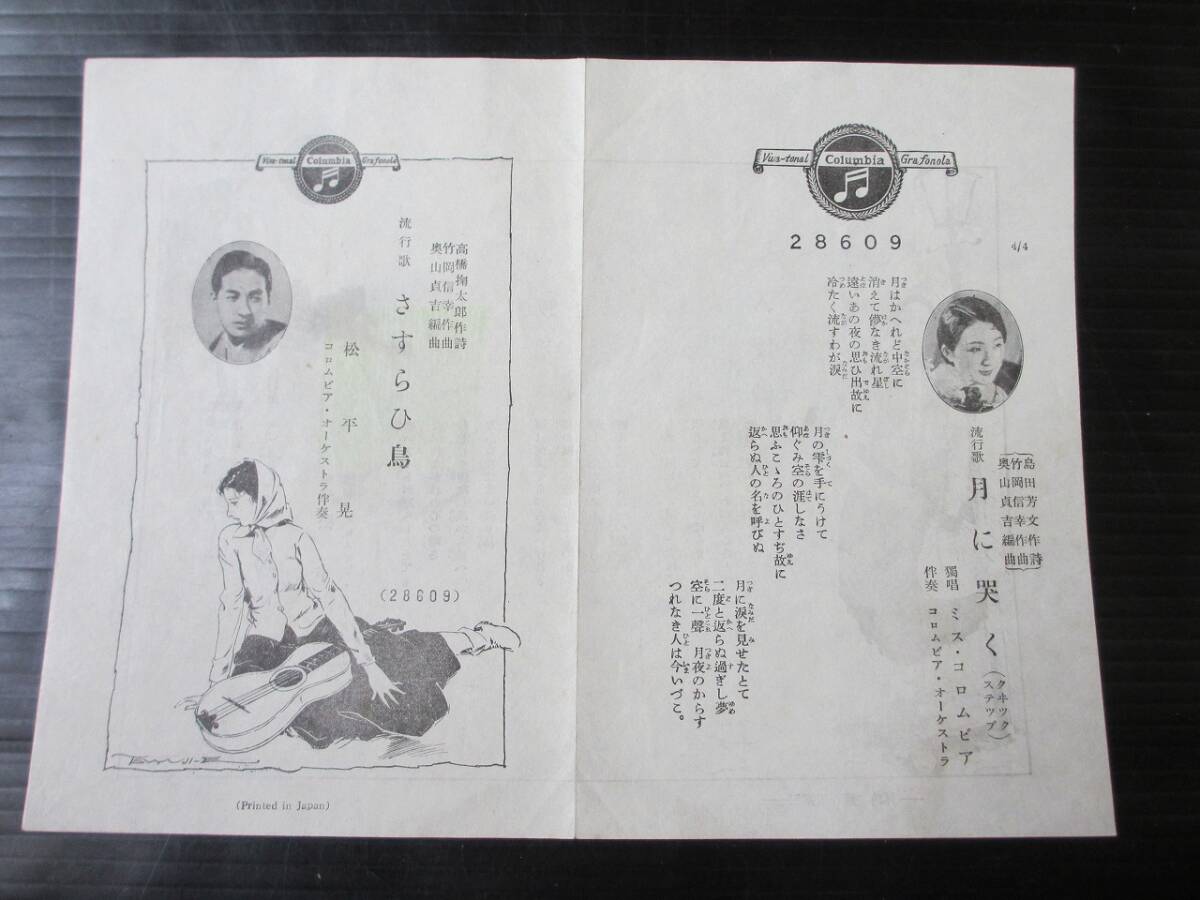 Viva-tonal Columbia Grafonola
28609
4/4
島田芳文作詩
竹岡信幸作曲
奥山貞吉編曲
流行歌 月に哭く(クヰックステップ)
獨唱 ミス・コロムビア
伴奏 コロムビア・オーケストラ
月はかへれど中空に
消えて儚なき流れ星
遠いあの夜の思ひ出故に
冷たく流すわが涙
月の雫を手にうけて
仰ぐみ空の涯しなさ
思ふこゝろのひとすぢ故に
返らぬ人の名を呼びぬ
月に涙を見せたとて
二度と返らぬ過ぎし夢
空に一聲 月夜のからす
つれなき人は今いづこ。
Viva-tonal Columbia Grafonola
高橋掬太郎作詩
竹岡信幸作曲
奥山貞吉編曲
流行歌 さすらひ鳥
松平晃
コロムビア・オーケストラ伴奏
(28609)
(Printed in Japan)